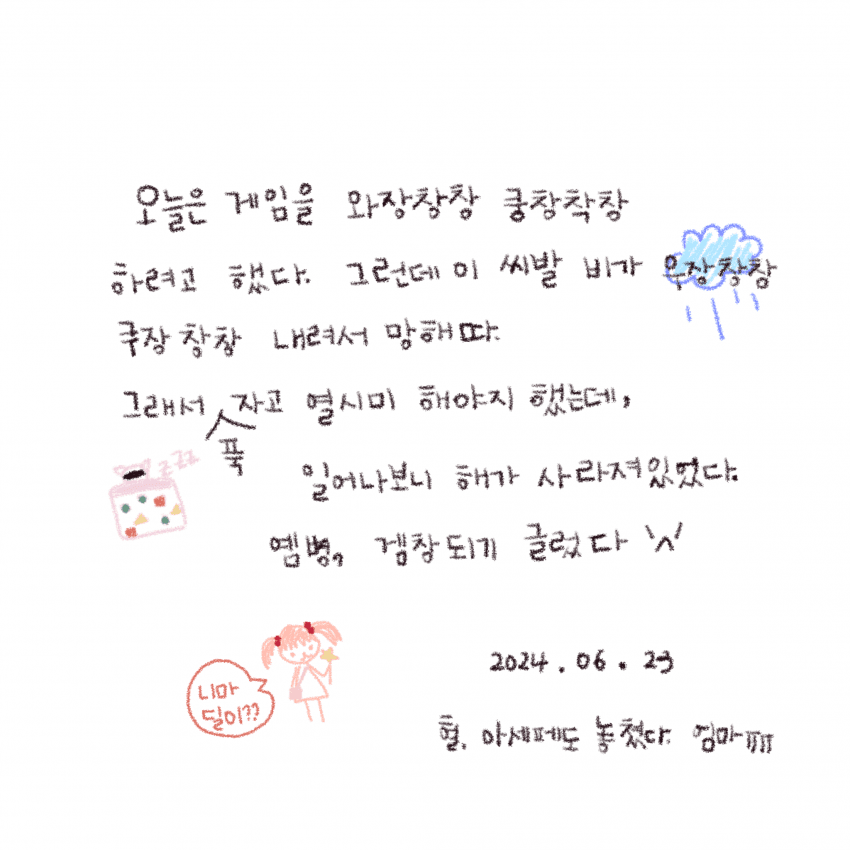 오늘은 게임을 와장창창 쿵창착창
하려고 했다. 그런데 이 씨발 비가 우장창창
쿠장창창 내려서 망해따.
그래서 푹 자고 열시미 해야지 했는데,
zzz
일어나보니 해가 사라져있었다.
옘병, 겜창되기 글렀다 ＼^／
2024.06.23
헐, 아세페도 놓쳤다. 엄마ㅠㅠ
니마
딜이??